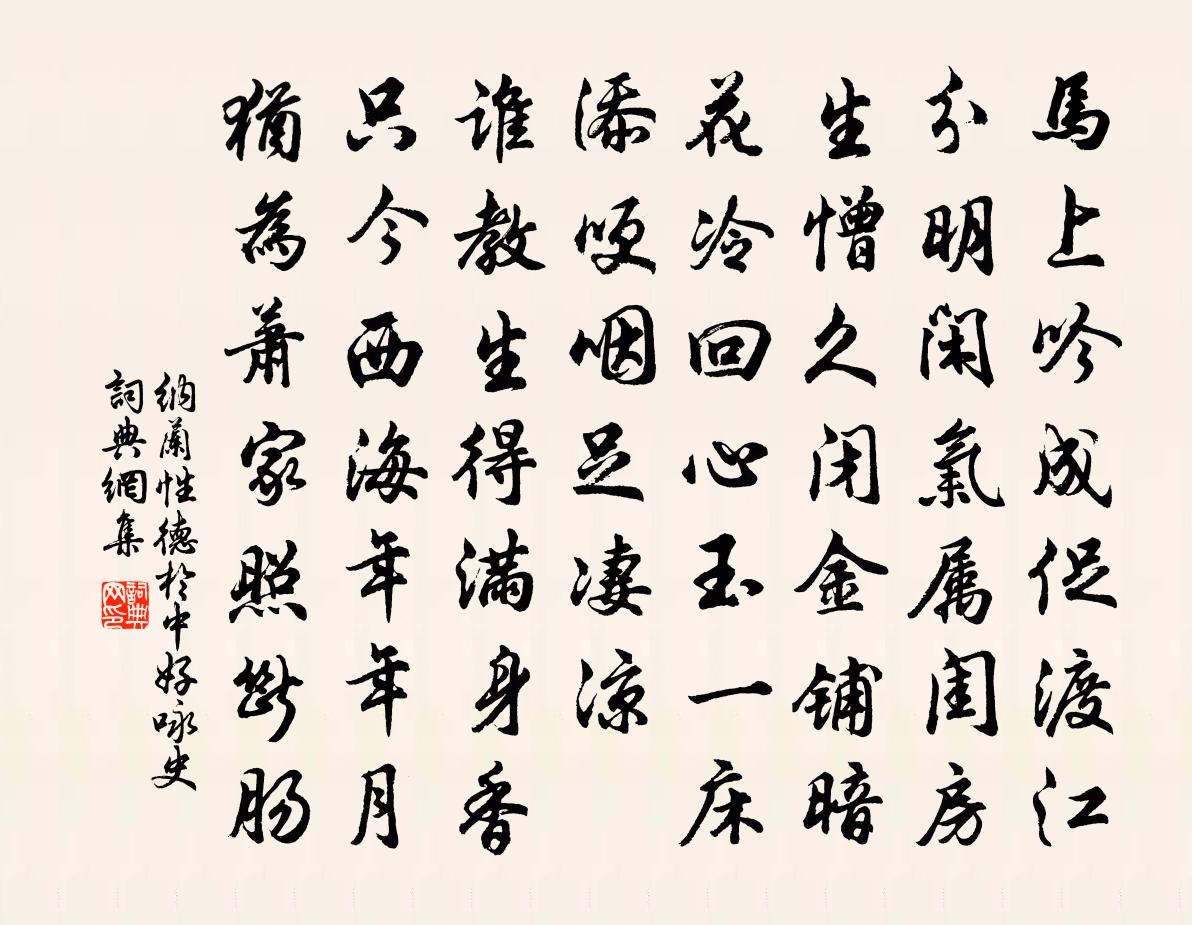 馬上吟成促渡江
分明閑氣属閨房
生憎久闭金铺暗
花冷回心玉一床
添哽咽足凄涼
谁教生得满身香
只今西海年年月
猶為蕭家照斷肠
納蘭性德於中好咏史
詞典網集
詞典網印